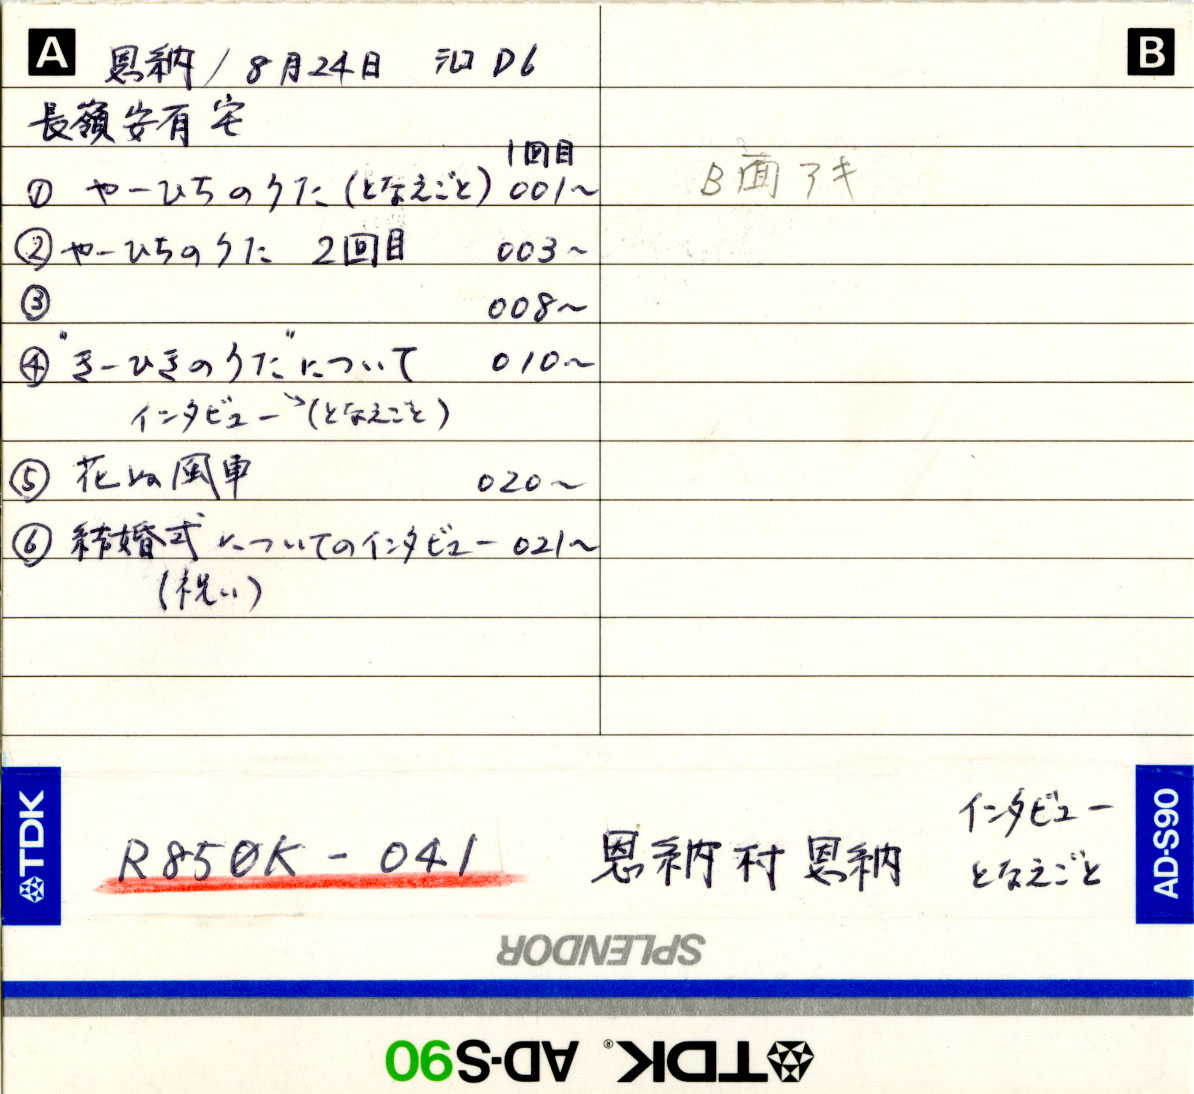 A
恩納/8月24日 氿口 D6
長嶺安有宅
1回目
① やーひちのうた(となえごと) 001~
② やーひちのうた 2回目 003~
③ 008~
④ "きーひきのうた"について 010~
インタビュー (となえごと)
⑤ 花ぬ風車 020~
⑥ 結婚式についてのインタビュー 021~
(祝い)
B
B面アキ
TDK
R850K-041 恩納村恩納
インタビュー
となえごと
AD-S90
SPLENDOR
TDK® AD-S90